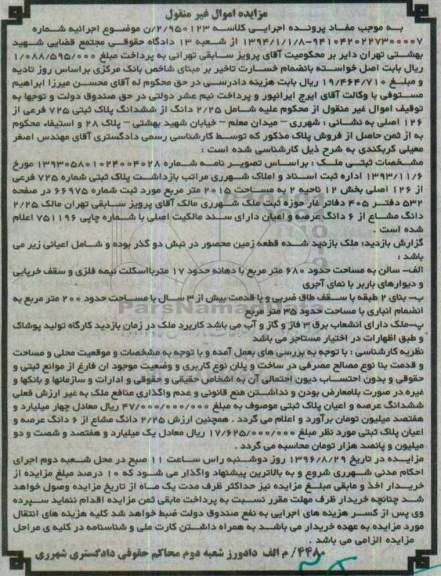 مزایده اموال غیر منقول
به موجب مفاد پرونده اجرایی کلاسه ۲/۹۵۰۱۲۳/ن موضوع اجرائیه شماره
۹۴۱۰۴۲۰۲۲۷۳۰۰۰۰۷-۱۳۹۴/۱/۱۸ از شعبه ۱۳ دادگاه حقوقی مجتمع قضایی شهید
بهشتی تهران دایر بر محکومیت آقای پرویز سابقی تهرانی به پرداخت مبلغ ۱/۰۸۸/۵۹۵/۰۰۰
ریال بابت اصل خواسته بانضمام خسارت تاخیر بر مبنای شاخص بانک مرکزی براساس روز تادیه
و مبلغ ۱۹/۴۶۴/۷۱۰ ریال بابت هزینه دادرسی در حق محکوم له آقای محسن میرزا ابراهیم
مستوفی با وکالت آقای ایرج ایرانپور و پرداخت نیم عشر دولتی در حق صندوق دولت و توجها به
توقیف اموال غیر منقول از محکوم علیه شامل ۲/۲۵ دانگ از ششدانگ پلاک ثبتی ۷۲۵ فرعی از
۱۲۶ اصلی به نشانی : شهرری – میدان معلم – خیابان شهید بهشتی – پلاک ۲۸ و استیفاء محکوم
به از ثمن حاصل از فروش پلاک مذکور که توسط کارشناس رسمی دادگستری آقای مهندس اصغر
معیلی کربکندی به شرح ذیل کارشناسی شده است :
مشخصات ثبتی ملک : براساس تصویر نامه شماره ۱۳۹۳۰۵۸۰۱۰۲۴۰۰۴۰۲۸ مورخ
۱۳۹۳/۱۱/۶ اداره ثبت اسناد و املاک شهرری مراتب بازداشت پلاک ثبتی شماره ۷۲۵ فرعی
از ۱۲۶ اصلی بخش ۱۲ ناحیه ۲ به مساحت ۲۰۱۵ متر مربع مورد ثبت شماره ۶۶۹۷۵ در صفحه
۵۳۲ دفتر ۴۰۵ دفاتر غار حوزه ثبت ملک شهرری مالک آقای پرویز سابقی تهران مالک ۲/۲۵
دانگ مشاع از ۶ دانگ عرصه و اعیان دارای سند مالکیت اصلی با شماره چاپی ۷۵۱۱۹۶ صادر
شده است .
گزارش بازدید: ملک بازدید شده قطعه زمین محصور در نبش دو گذر بوده و شامل اعیانی زیر می
باشد :
الف- سالن به مساحت حدود ۶۸۰ متر مربع با دهانه حدود ۱۷ مترباا سکلت نیمه فلزی و سقف خرپایی
و دیوارهای باربر با نمای آجری
ب- بنای ۲ طبقه با سقف طاق ضربی و با قدمت بیش از ۳ سال با مساحت حدود ۲۰۰ متر مربع به
انضمام انباری با مساحت حدود ۳۵ متر مربع
پ- ملک دارای انشعاب برق ۳ فاز و گاز و آب می باشد کاربرد ملک در زمان بازدید کارگاه تولید پوشاک
و طبق اظهارات در اختیار مستاجر می باشد
نظریه کارشناسی : با توجه به بررسی های بعمل آمده و با توجه به مشخصات و موقعیت محلی و مساحت
و قدمت بنا نوع مصالح مصرفی در ساخت و پلان نوع کاربری و وضعیت موجود ان فارغ از موانع ثبتی و
حقوقی و بدون احتساب دیون احتمالی آن به اشخاص حقیقی و حقوقی و ادارات و سازمانها و بانکها و
غیره در صورت بلامعارض بودن و نداشتن منع قانونی و عدم واگذاری منافع ملک به غیر ارزش فعلی
ششدانگ عرصه و اعیان پلاک ثبتی موصوف به مبلغ ۴۷/۰۰۰/۰۰۰/۰۰۰ ریال معادل چهار میلیارد و
هفتصد میلیون تومان برآورد و اعلام می گردد . همچنین ارزش ۲/۲۵ دانگ مشاع از ۶ دانگ عرصه و
اعیان پلاک ثبتی مورد نظر مبلغ ۱۷/۶۲۵/۰۰۰/۰۰۰ ریال معادل یک میلیارد و هفتصد و شصت و دو
میلیون و پانصد هزار تومان محاسبه می گردد .
مزایده در تاریخ ۱۳۹۶/۸/۲۹ روز دوشنبه راس ساعت ۱۰ صبح در محل شعبه دوم اجرای
احکام مدنی شهرری شروع و به بالاترین پیشنهاد واگذار می شود که ۱۰ درصد مبلغ مزایده از
خریدار اخذ و مابقی مبلغ مزایده نیز حداکثر ظرف مدت یک ماه از تاریخ مزایده وصول خواهد
شد چنانچه خریدار ظرف مهلت مقرر نسبت به پرداخت مابقی ثمن مزایده اقدام ننماید سپرده
وی پس از کسر هزینه های اجرایی به نفع صندوق دولت ضبط خواهد شد کلیه هزینه های انتقال
مورد مزایده به عهده خریدار می باشد به همراه داشتن کارت ملی و شناسنامه در کلیه ی مراحل
مزایده الزامی می باشد .
۴۴۸۰/م الف دادورز شعبه دوم محاکم حقوقی دادگستری شهرری
ParsNamadData